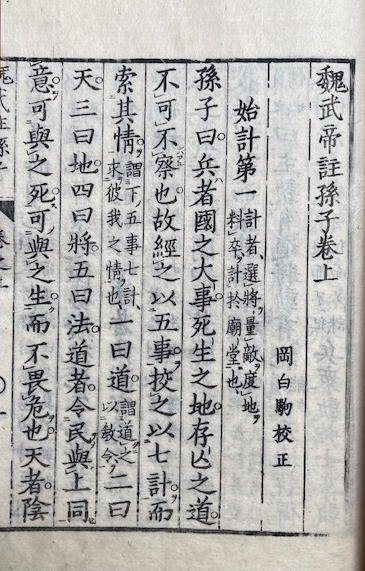 魏武帝註孫子卷上
岡白駒校正
始計第一計者選將量敵度地料卒計於廟堂也
孫子曰兵者國之大事死生之地存亡之道
不可不察也故經之以五事挍之以七計而
索其情謂下五事七計求彼我之情也一曰道謂道之以敎令二曰
天三曰地四曰將五曰法道者令民與上同
意可與之死可與之生而不畏危也天者陰